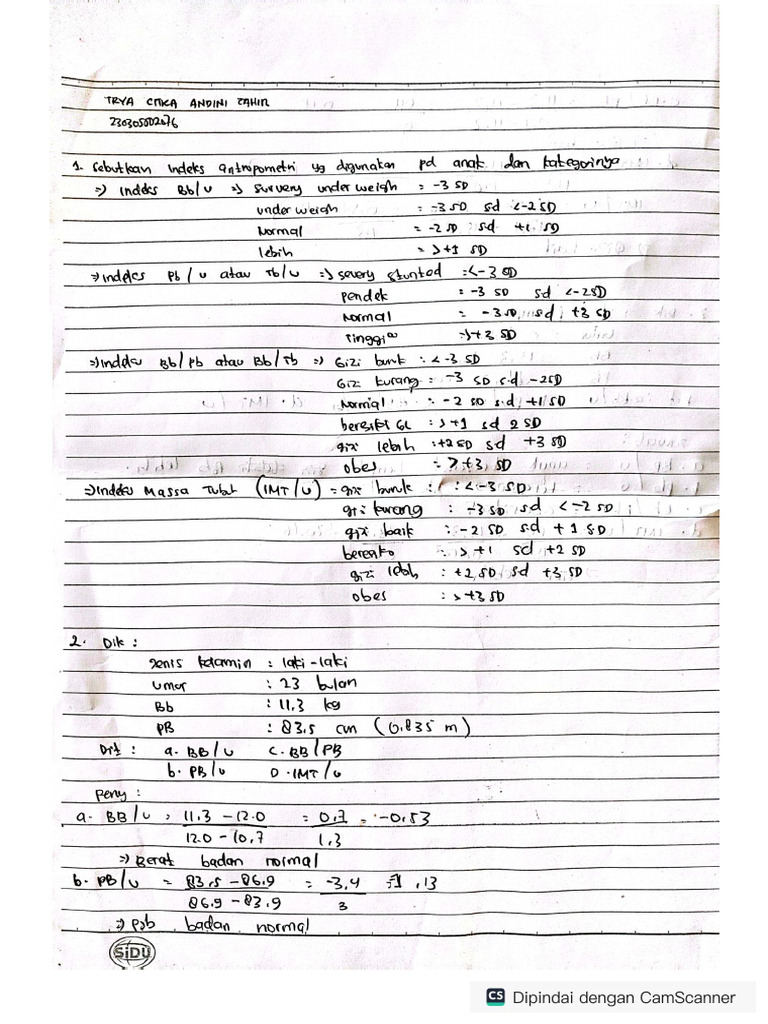 TRYA CITKA ANDINI ZAHIR
230305502076
1. Sebutkan indeks antropometri yg digunakan pd anak dan kategorinya
=> Indeks Bb/U => Survery under weigh = -3 SD
under weigh = -3 SD sd <-2 SD
Normal = -2 SD sd +1 SD
lebih = >+1 SD
=> indeks Pb/U atau Tb/U => severy stunted : <-3 SD
pendek = -3 SD sd <-2SD
Normal = -3 SD sd +3 SD
Tinggi => +3 SD
=> Indeks Bb/Pb atau Bb/Tb => Gizi buruk : <-3 SD
Gizi kurang = -3 SD s.d -2SD
Normal : -2 SD s.d +1 SD
beresiko GL : >+1 sd 2 SD
gizi lebih : +2 SD sd +3 SD
obes = >+3 SD
=> Indeks Massa Tubuh (IMT/U) = gizi buruk : <-3 SD
gizi kurang : -3 SD sd <-2 SD
gizi baik : -2 SD sd +1 SD
beresiko : >+1 sd +2 SD
gizi lebih : +2 SD sd +3 SD
obes : >+3 SD
2. Dik :
Jenis kelamin : laki-laki
Umur : 23 bulan
Bb : 11,3 kg
PB : 83,5 cm (0.835 m)
Dit : a. BB/U C. BB/PB
b. PB/U D. IMT/U
Peny :
a. BB/U = 11.3 - 12.0 = 0.7 = -0,53
12.0 - 10,7 1,3
=> Berat badan normal
b. PB/U = 83,5 - 86.9 = -3,4 = -1,13
86.9 - 83.9 3
=> badan normal
SIDU
CS Dipindai dengan CamScanner